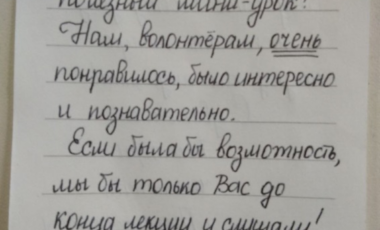 полезный мини-урок!
Нам, волонтёрам, очень
понравилось, было интересно
и познавательно.
Если была бы возмотность,
мы бы только Вас до
конца лекции и слушали!